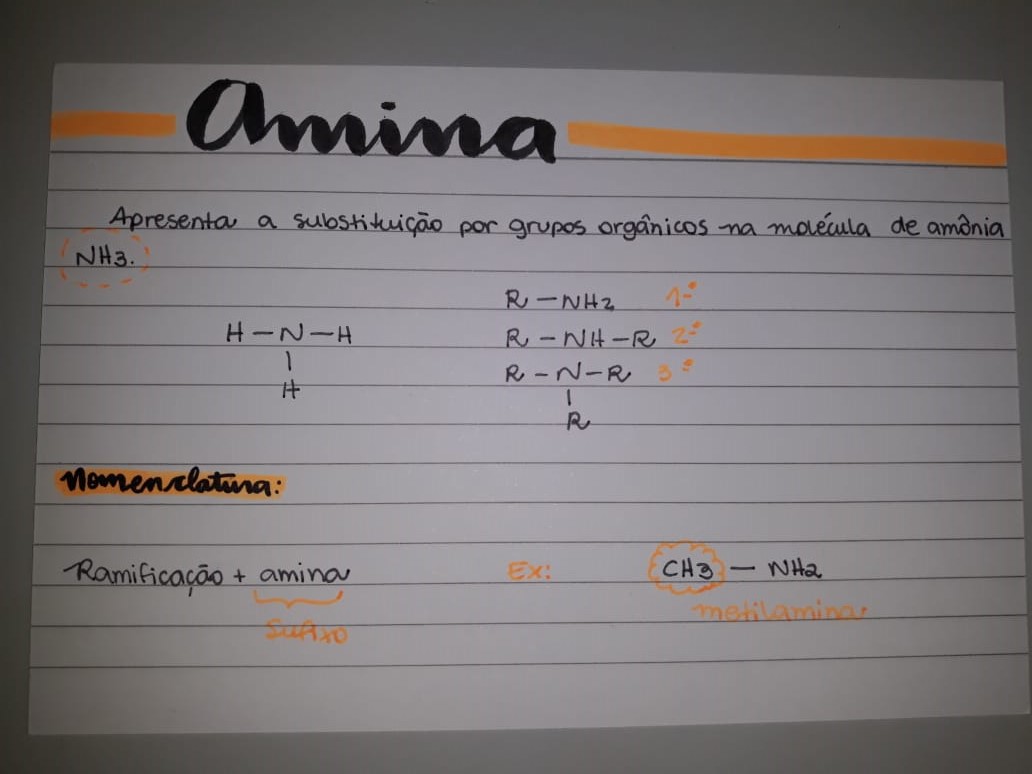 Amina
Apresenta a substituição por grupos orgânicos na molécula de amônia
NH3.
R — NH2 1-ª
H — N — H
R — NH — R 2-ª
|
R — N — R 3ª
H
|
R
Nomenclatura:
Ramificação + amina Ex: CH3 — NH2
Sufixo metilamina